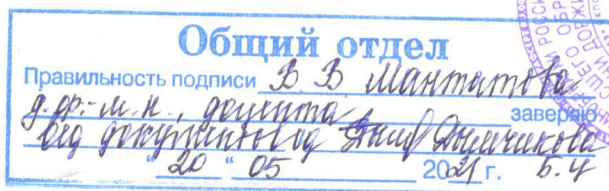 Общий отдел
Правильность подписи В. В. Мантатова
д.ф.-м.н., доцента заверяю
вед документовед
"20" 05 2021 г. Б.Ч